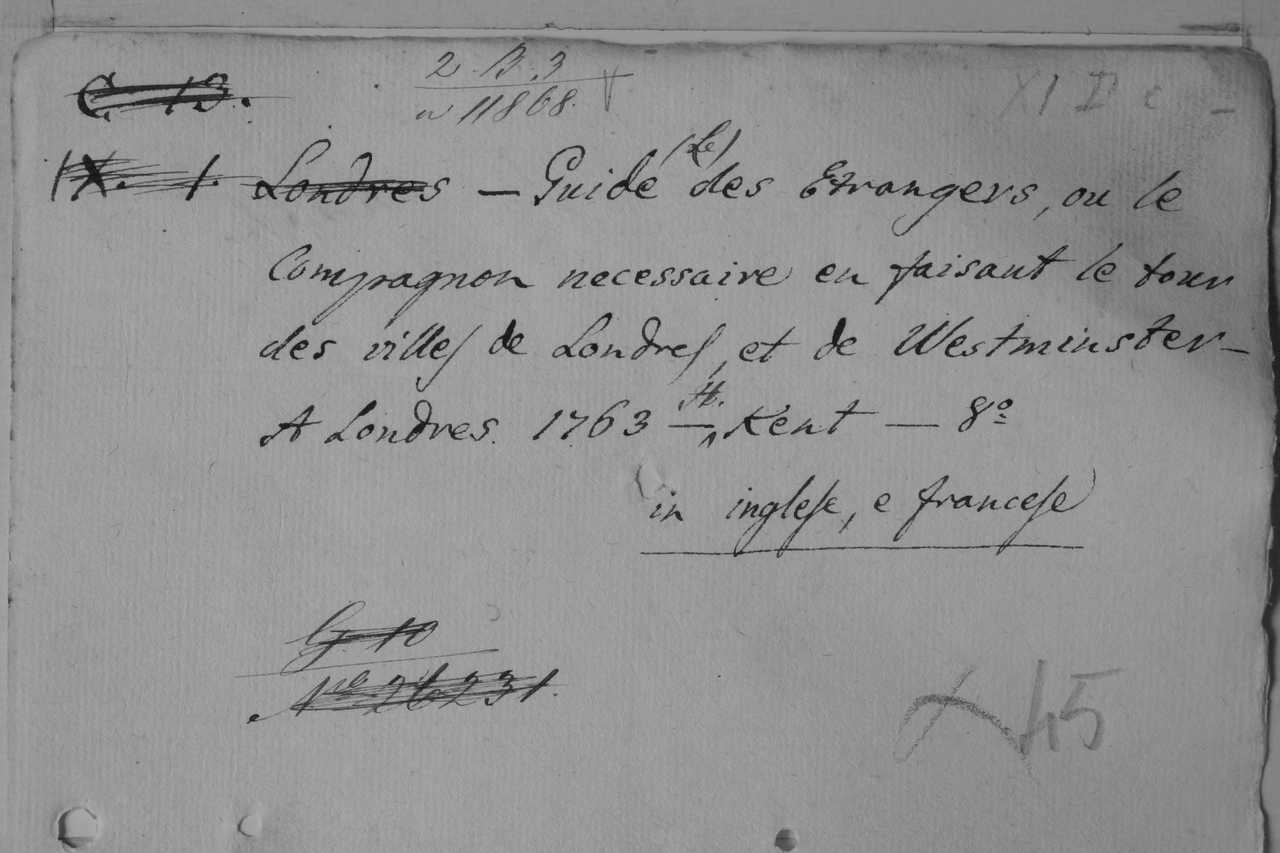 C. 13.
2 B. 3
n 11868
XI D c -
IX. 1. Londres — Guide (Le) des Etrangers, ou le
Compagnon necessaire en faisant le tour
des villes de Londres, et de Westminster —
A Londres. 1763 — H. Kent — 8º
in inglese, e francese
G. 10
Nº 26231.
45